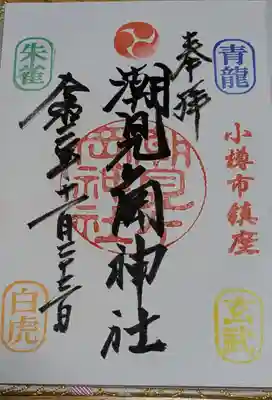 奉拝
青龍
小樽市鎮座
玄武
潮見ヶ岡神社
朱雀
令和二年十一月二十三日
白虎